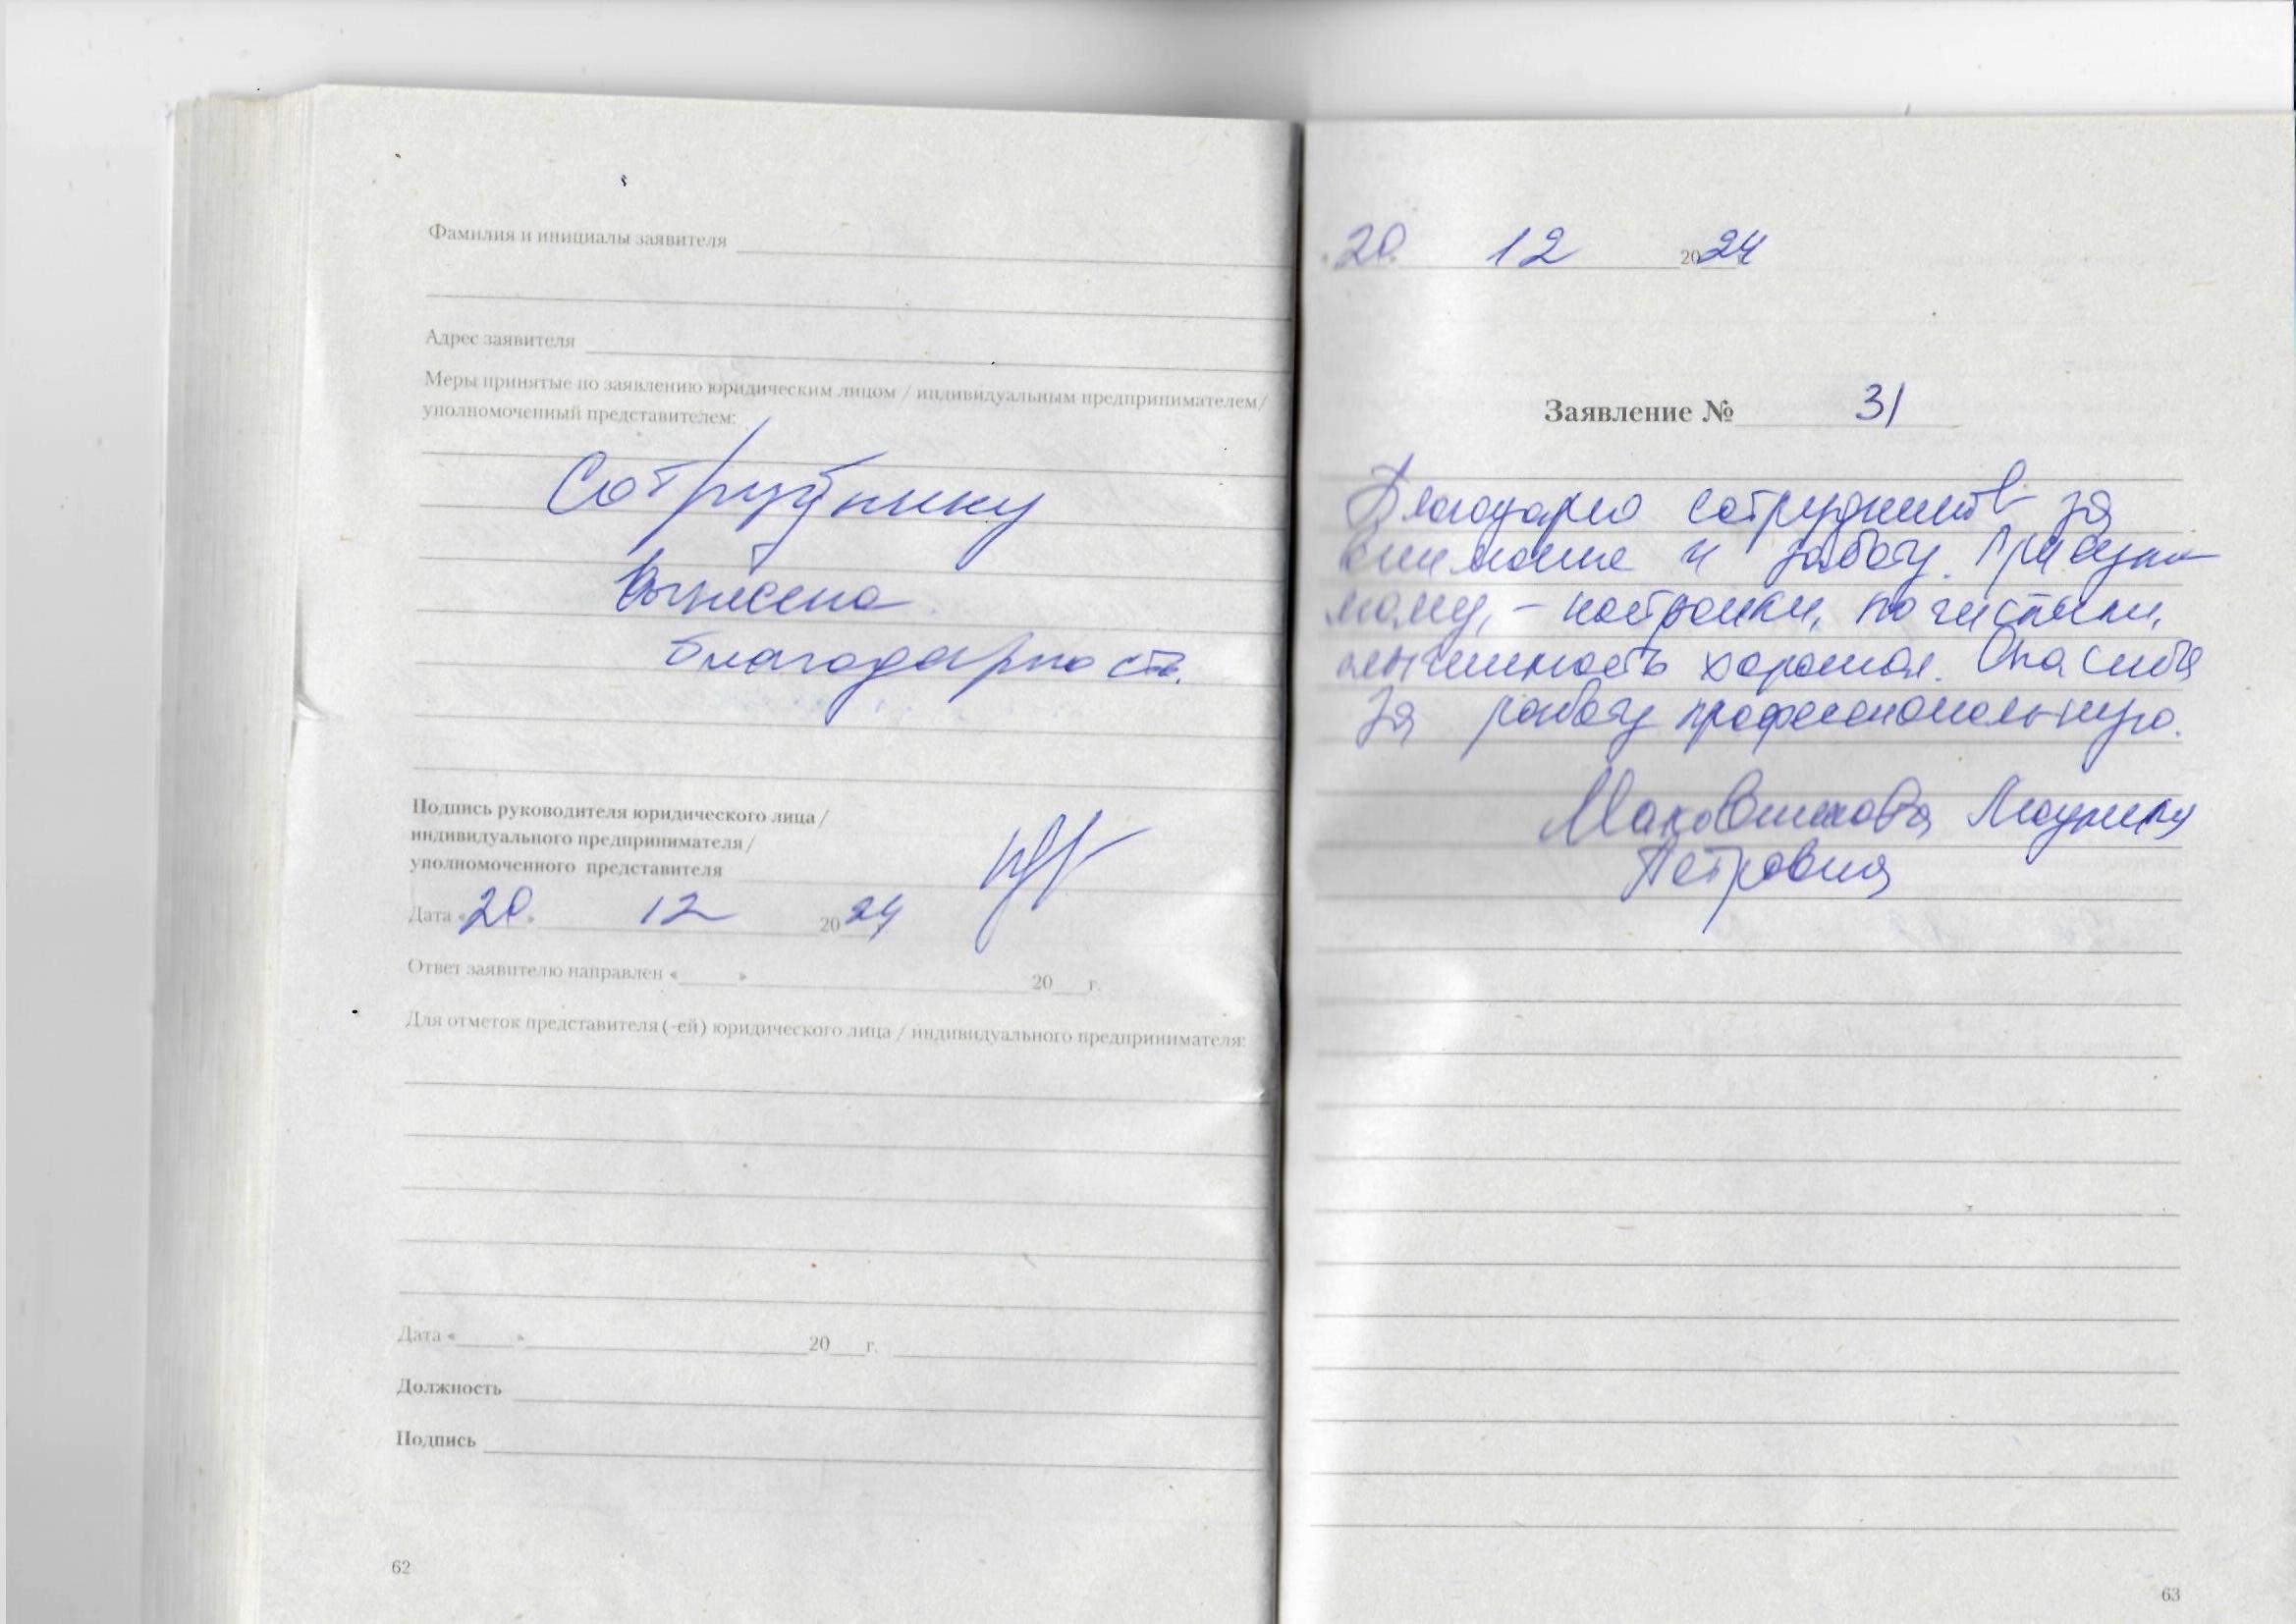 Фамилия и инициалы заявителя
Адрес заявителя
Меры принятые по заявлению юридическим лицом / индивидуальным предпринимателем/
уполномоченный представителем:
Сотруднику
вынесена
благодарность.
Подпись руководителя юридического лица /
индивидуального предпринимателя /
уполномоченного представителя
Дата «20» 12 2024
Ответ заявителю направлен « » 20 г.
Для отметок представителя (-ей) юридического лица / индивидуального предпринимателя:
Дата « » 20 г.
Должность
Подпись
62
20. 12 2024
Заявление № 31
Благодарю сотрудников за
внимание и заботу.
маму, - настроили, почистили,
слышимость хорошая. Спасибо
за работу профессиональную.
Людмила
Петровна
63